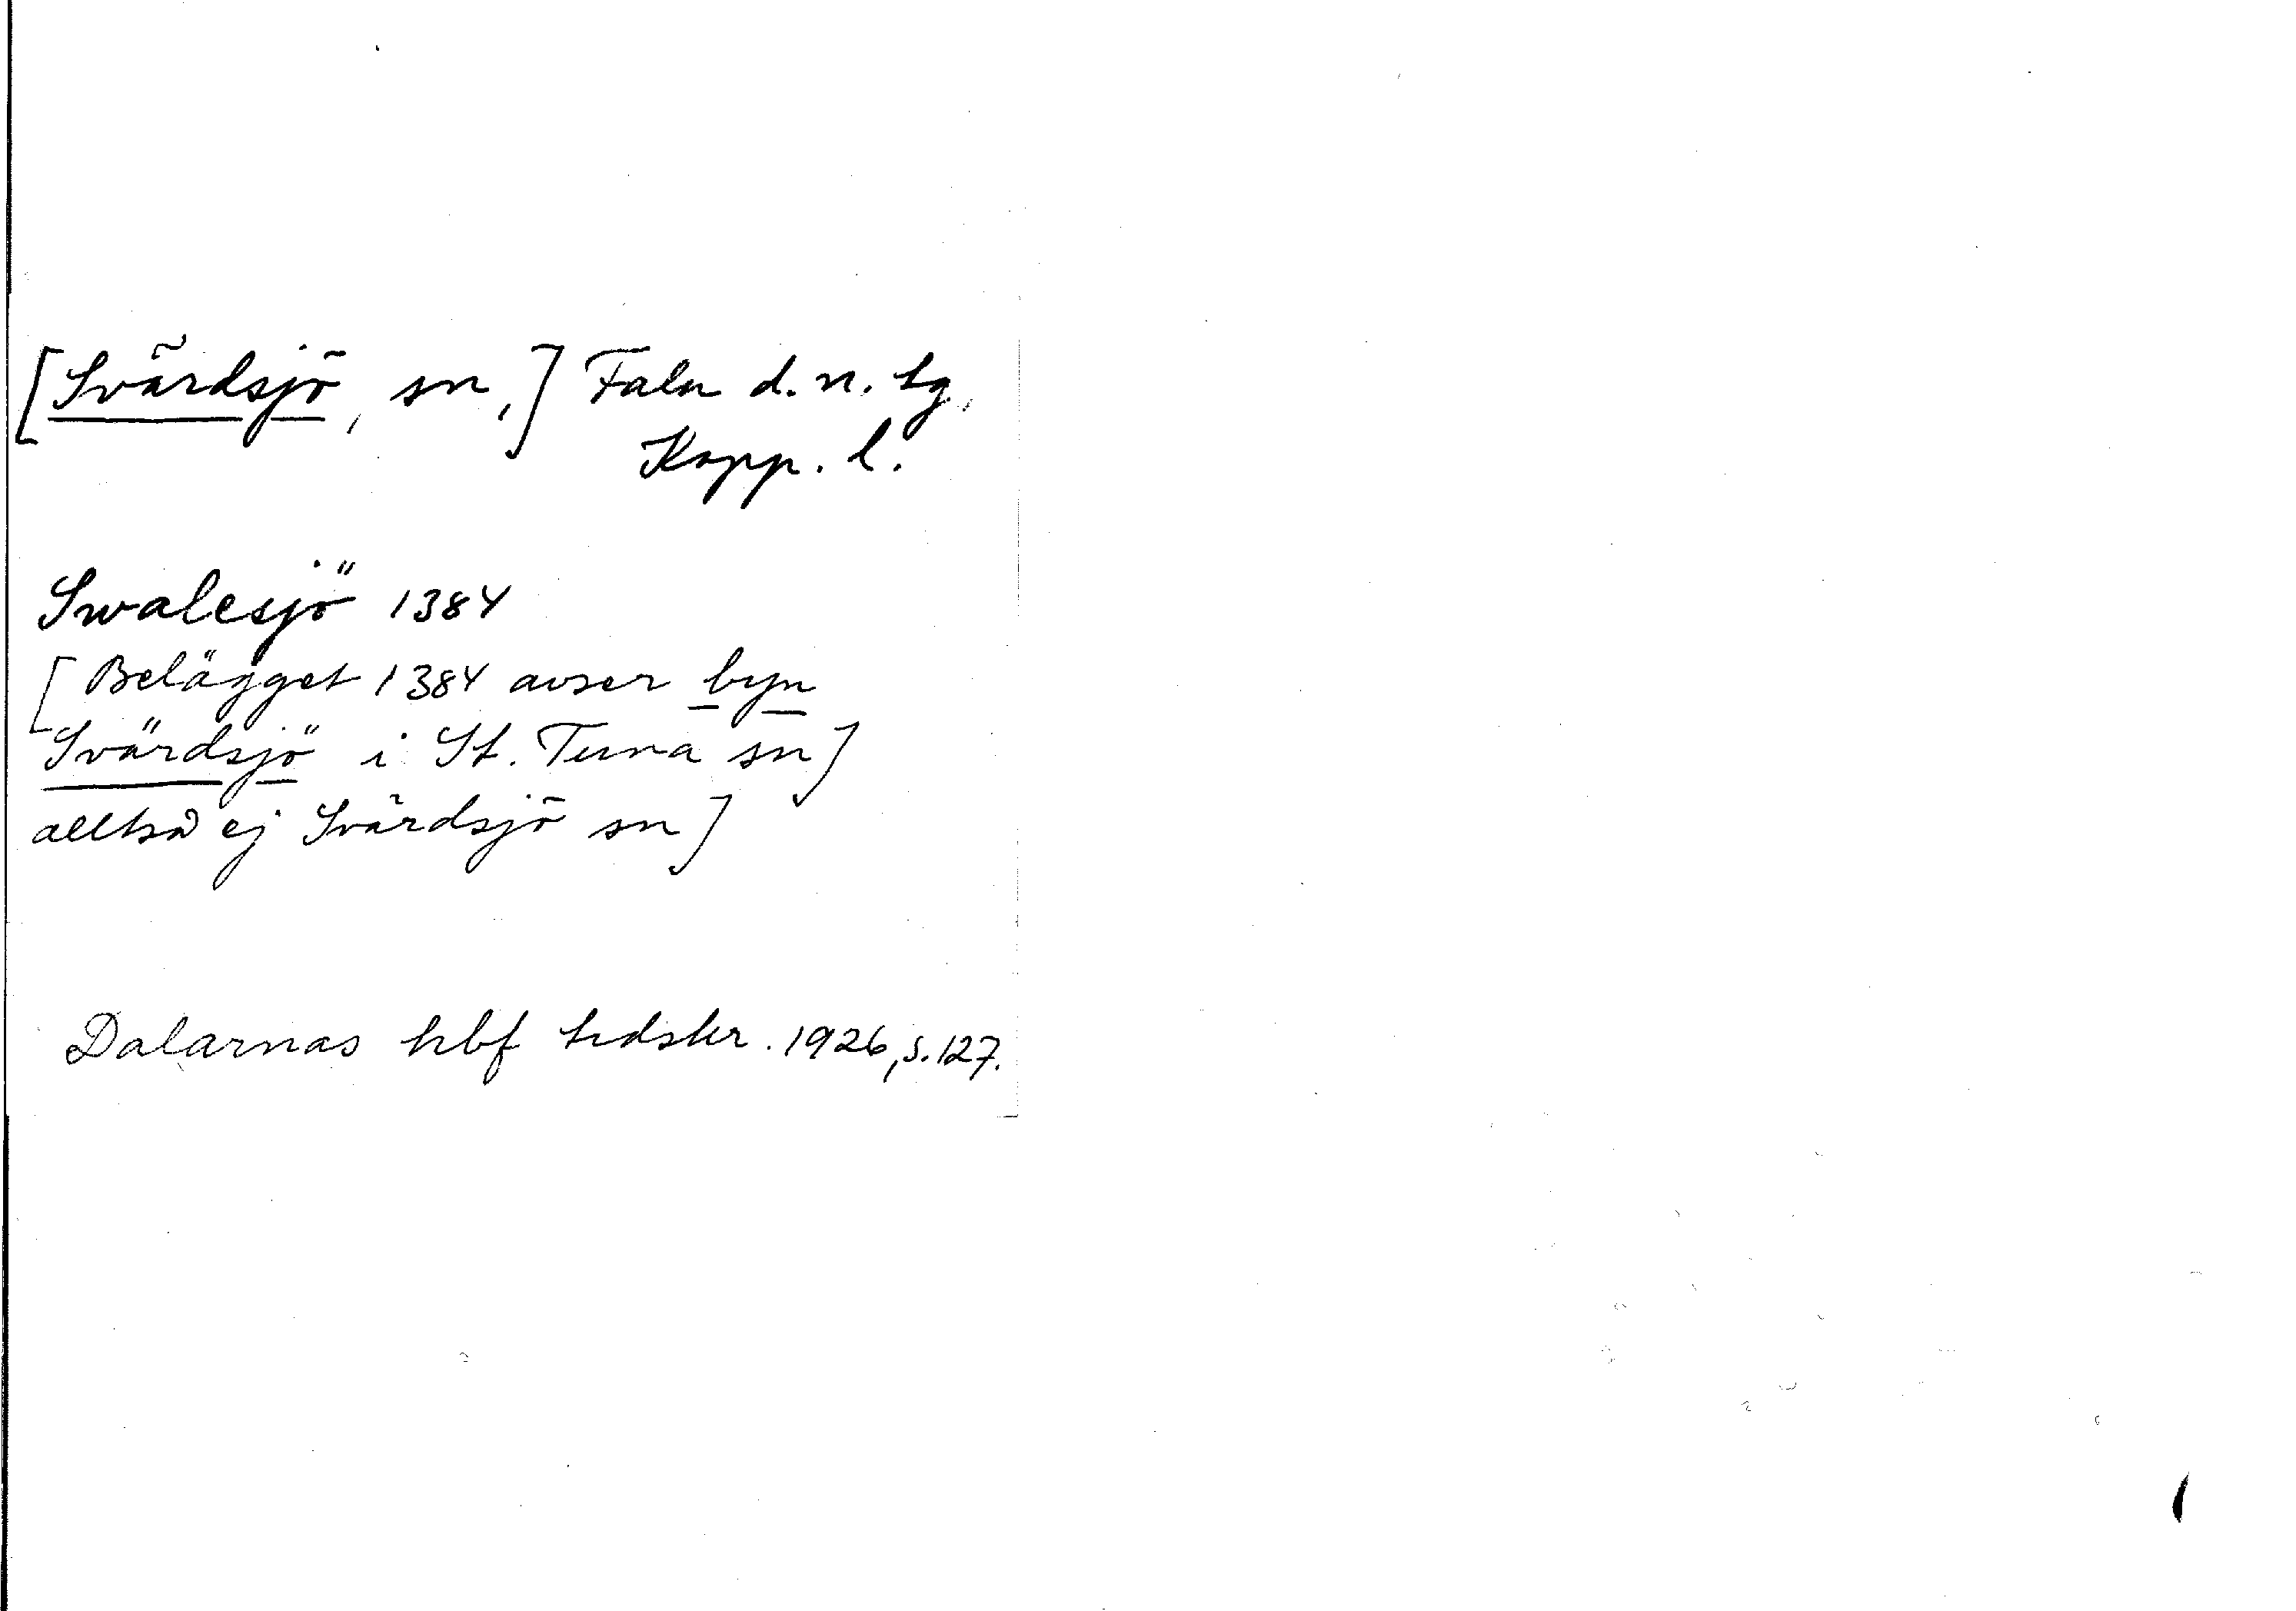 [Svärdsjö, sn,] Falu d.n. tg,
Kopp. l.
Swalesjö 1384
[Belägget 1384 avser byn
Svärdsjö i St. Tuna sn]
alltså ej Svärdsjö sn]
Dalarnas hbf tidskr. 1926, s. 127.